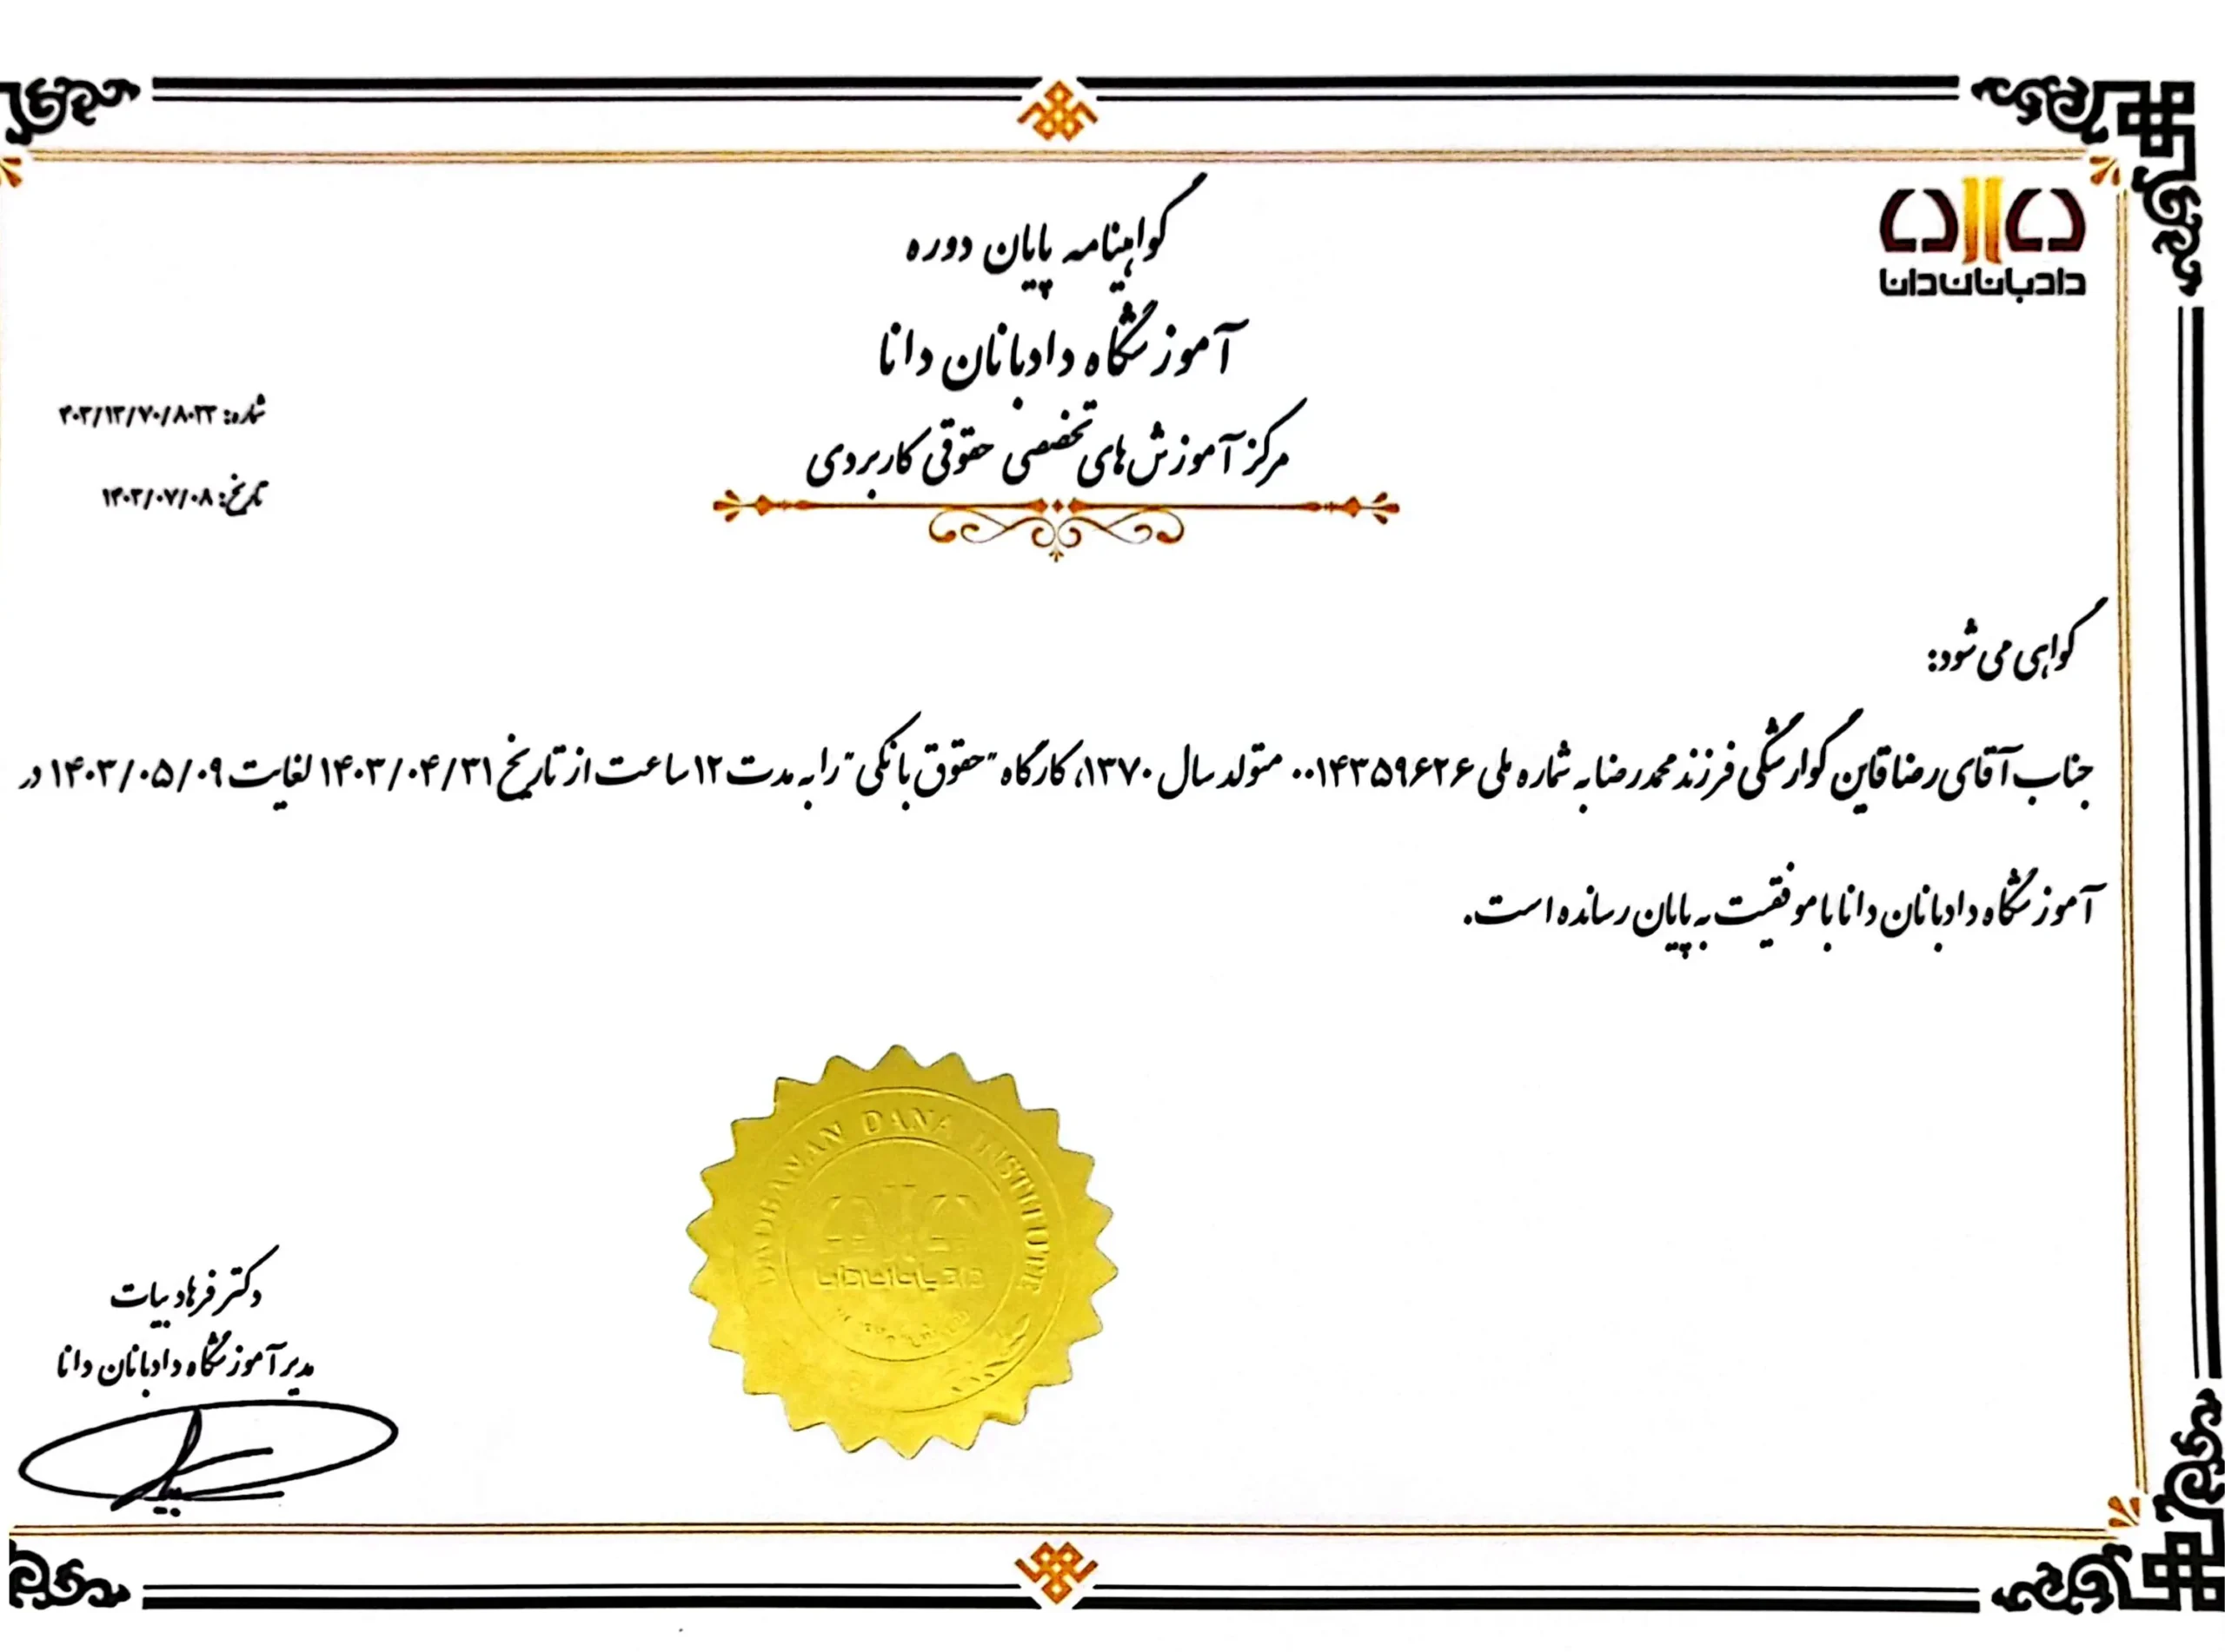 دادبانان دانا
گواهینامه پایان دوره
آموزشگاه دادبانان دانا
مرکز آموزش‌های تخصصی حقوقی کاربردی
شماره: ۴۰۳/۱۳/۷۰/۸۰۳۳
تاریخ: ۱۴۰۳/۰۷/۰۸
گواهی می شود:
جناب آقای رضا قاین گوارشگی فرزند محمدرضا به شماره ملی ۰۰۱۴۳۵۹۶۲۶ متولد سال ۱۳۷۰، کارگاه "حقوق بانکی" را به مدت ۱۲ ساعت از تاریخ ۱۴۰۳/۰۴/۳۱ لغایت ۱۴۰۳/۰۵/۰۹ در
آموزشگاه دادبانان دانا با موفقیت به پایان رسانده است.
DADBANAN DANA INSTITUTE
دادبانان دانا
دکتر فرهاد بیات
مدیر آموزشگاه دادبانان دانا